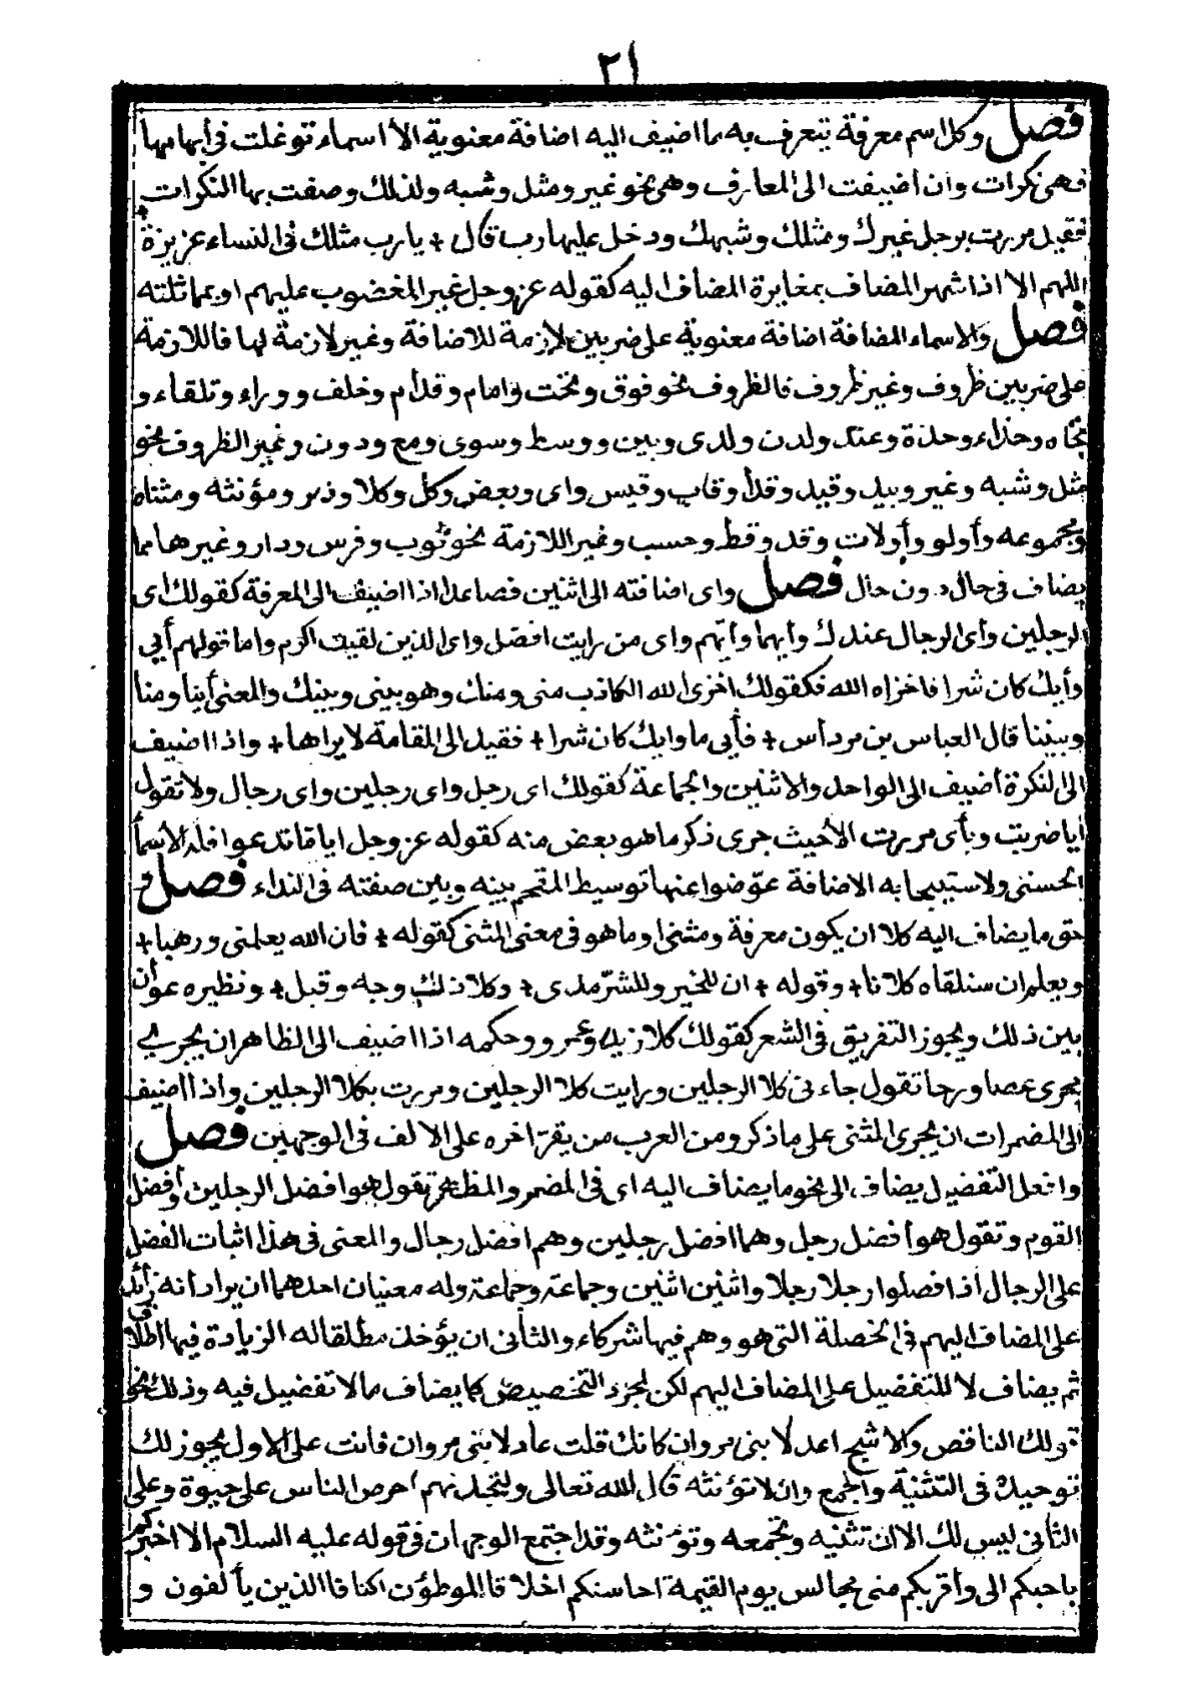 ٢١
فصل وكل اسم معرفة يتعرف به ما اضيف اليه اضافة معنوية الا اسماء توغلت في أبهامها
فهى نكرات وان أضيفت الى المعارف وهى نحو غير ومثل وشبه ولذلك وصفت بها النكرات
فقيل مررت برجل غيرك ومثلك وشبهك ودخل عليها رب قال + يا رب مثلك فى النساء عزيزة
اللهم الا اذا شهر المضاف بمغايرة المضاف اليه كقوله عز وجل غير المغضوب عليهم او بمماثلته
فصل والاسماء المضافة اضافة معنوية على ضربين لازمة للاضافة وغير لازمة لها فاللازمة
على ضربين ظروف وغير ظروف فالظروف نحو فوق وتحت وامام وقدام وخلف ووراء وتلقاء و
تجاه وحذاء وحذة وعند ولدن ولدى وبين ووسط وسوى ومع ودون وغير الظروف نحو
مثل وشبه وغير وبيد وقيد وقدا وقاب وقيس واى وبعض وكل وكلا وذو ومؤنثه ومثناه
ومجموعه وأولو وأولات وقد وقط وحسب وغير اللازمة نحو ثوب وفرس ودار وغيرها مما
يضاف فى حال دون حال فصل واى اضافته الى اثنين فصاعدا اذا اضيف الى المعرفة كقولك اى
الرجلين وأى الرجال عندك وأيهما وأيهم واى من رايت افضل واى الذين لقيت اكرم واما قولهم أيي
وأيك كان شرا فاخزاه الله فكقولك اخزى الله الكاذب منى ومنك وهو بينى وبينك والمعنى أينا ومنا
وبيننا قال العباس بن مرداس + فأيى ما وايك كان شرا + فقيد الى المقامة لا يراها + واذا اضيف
الى النكرة اضيف الى الواحد والاثنين والجماعة كقولك اى رجل واى رجلين واى رجال ولا تقول
ايا ضربت وبأى مررت الا حيث جرى ذكر ما هو بعض منه كقوله عز وجل ايا ما تدعوا فله الاسما
الحسنى ولاستيجابه الاضافة عوّضوا عنها توسيط المقحم بينه وبين صفته فى النداء فصل و
حق ما يضاف اليه كلا ان يكون معرفة ومثنى او ما هو فى معنى المثنى كقوله + فان الله يعلمنى ووهبا +
ويعلم ان سنلقاه كلانا + وقوله + ان للخير وللشرّ مدى + وكلا ذلك وجه وقبل + ونظيره عوان
بين ذلك ويجوز التفريق فى الشعر كقولك كلا زيد وعمرو وحكمه اذا اضيف الى الظاهر ان يجرى
مجرى عصا ورحا تقول جاءنى كلا الرجلين ورايت كلا الرجلين ومررت بكلا الرجلين واذا اضيف
الى المضمرات ان يجرى المثنى على ما ذكر ومن العرب من يقرّ اخره على الالف فى الوجهين فصل
وافعل التفضيل يضاف الى نحو ما يضاف اليه اى فى المضمر والمظهر تقول هو افضل الرجلين وأفضل
القوم وتقول هو أفضل رجل وهما افضل رجلين وهم افضل رجال والمعنى فى هذا اثبات الفضل
على الرجال اذا فصلوا رجلا رجلا واثنين اثنين وجماعة وجماعة وله معنيان احدهما ان يراد انه زائد
على المضاف اليهم فى الخصلة التى هو وهم فيها شركاء والثانى ان يؤخذ مطلقا له الزيادة فيها اطلاق
ثم يضاف لا للتفضيل على المضاف اليهم لكن لمجرد التخصيص كما يضاف ما لا تفضيل فيه وذلك نحو
قولك الناقص والاشج اعدلا بنى مروان كانك قلت عادلا بنى مروان فانت على الاول يجوز لك
توحيده فى التثنية والجمع وان لا تؤنثه قال الله تعالى ولتجدنهم احرص الناس على حيوة وعلى
الثانى ليس لك الا ان تثنيه وتجمعه وتؤنثه وقد اجتمع الوجهان فى قوله عليه السلام الا اخبركم
باحبكم الى وأقربكم منى مجالس يوم القيمة احاسنكم اخلاقا الموطؤن اكنافا الذين يألفون و